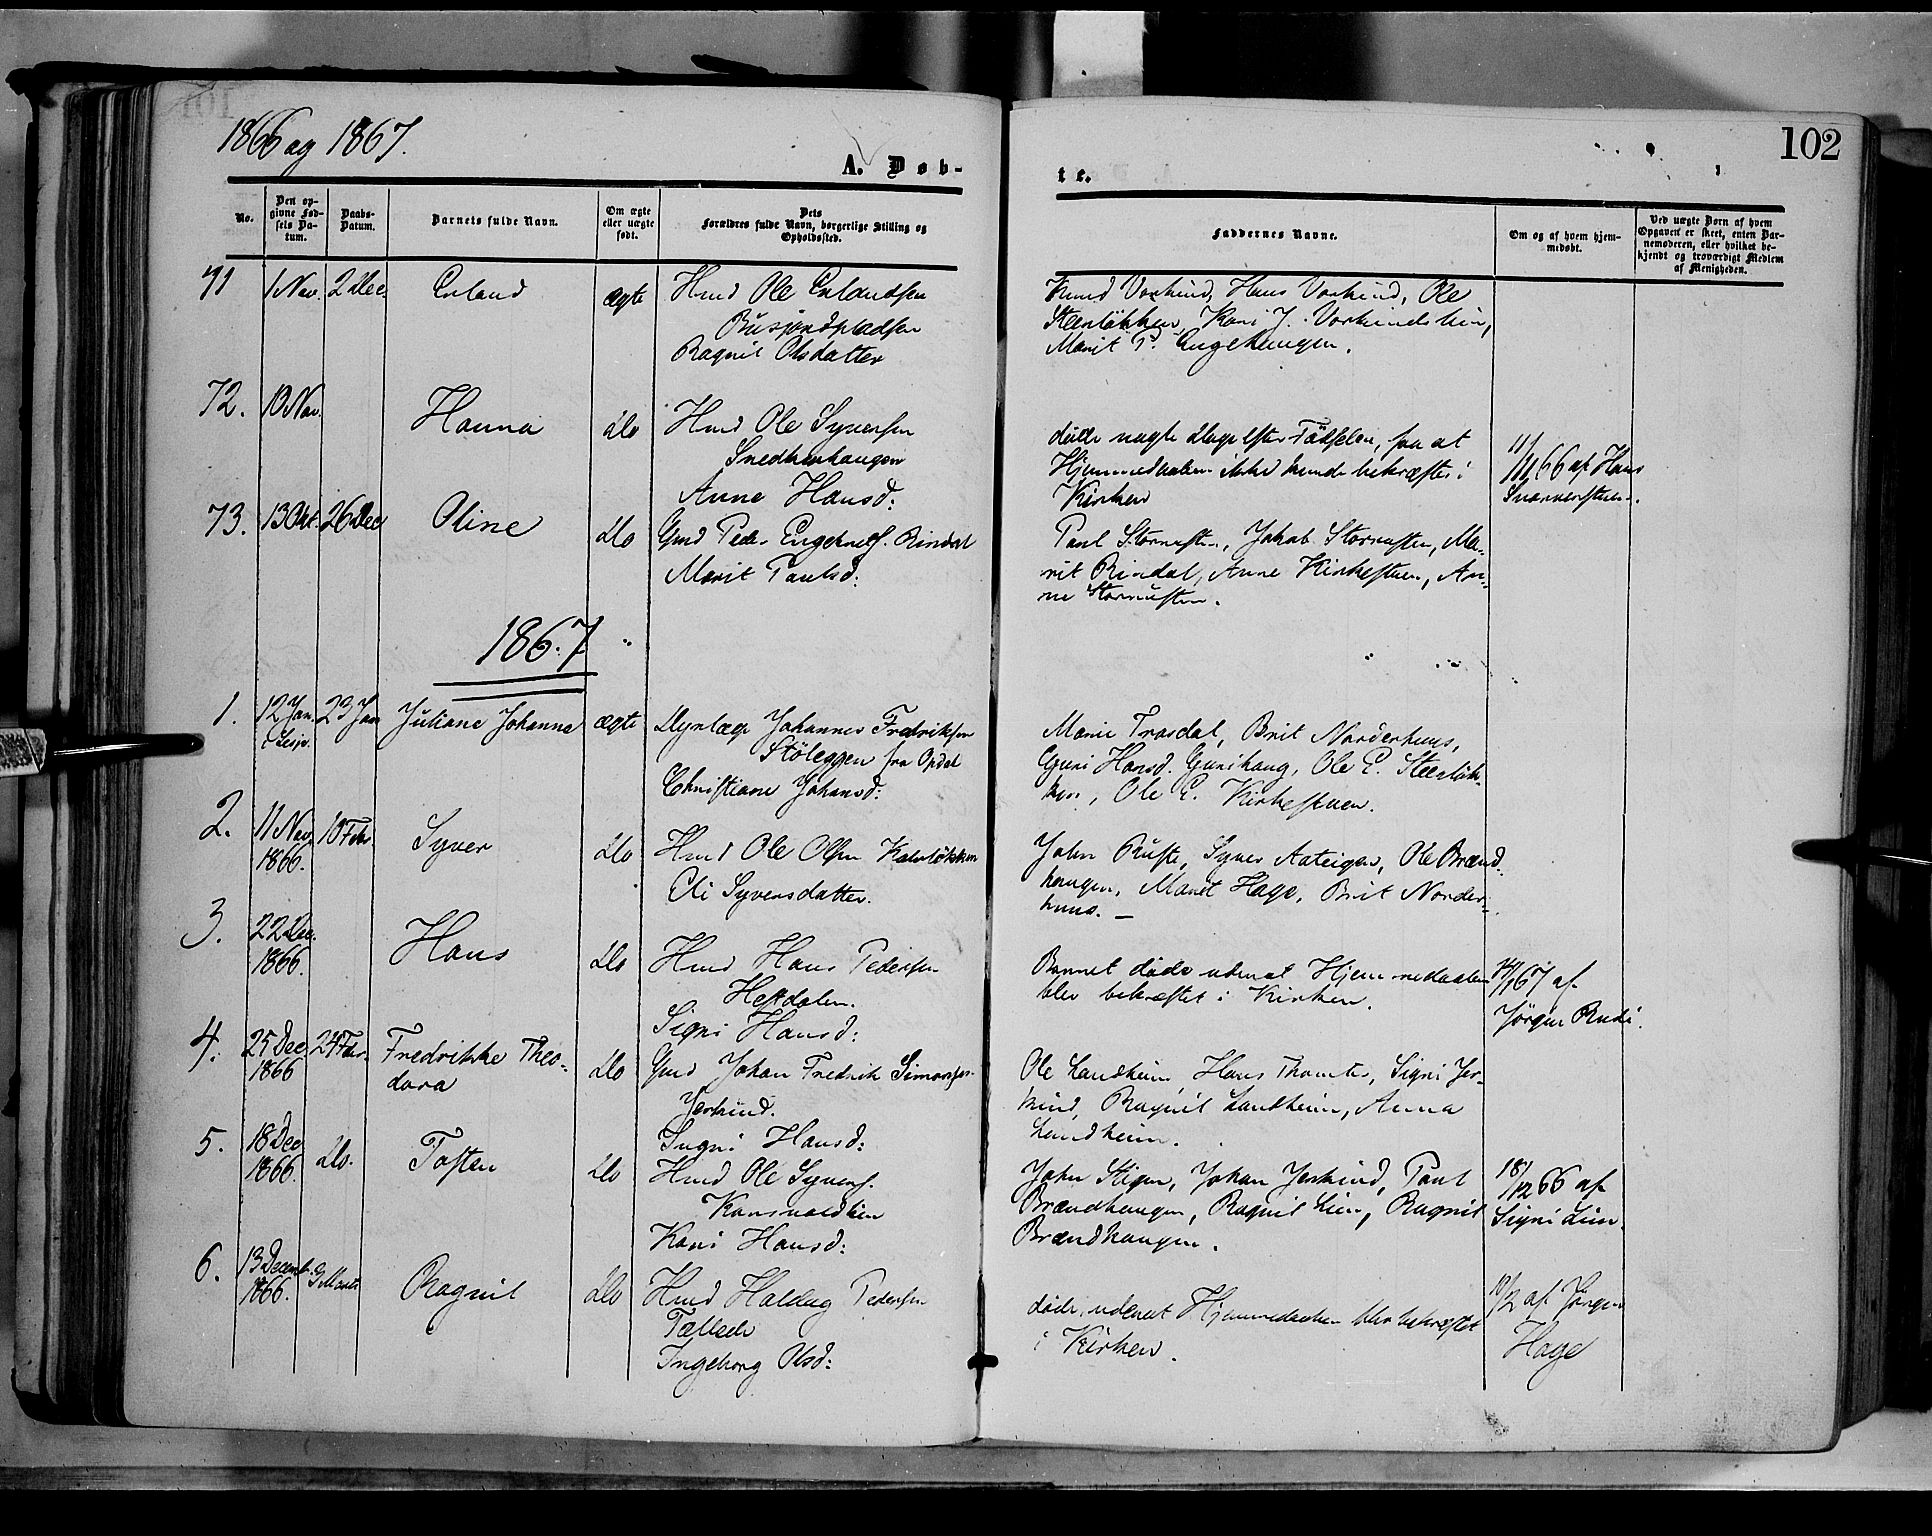 1866 og 1867.
102
A. Døb-
te.
No.
Den op-
givne Fød-
sels Da-
tum.
Daabs-
Datum.
Barnets fulde Navn.
Om ægte
eller uægte
født.
Dets
Forældres fulde Navn, borgerlige Stilling og
Opholdssted.
Faddernes Navne.
Om og af hvem hjem-
medøbt.
Ved uægte Børn af hvem
Opgaven er skeet, enten Bar-
nemoderen, eller hvilket be-
kjendt og troværdigt Medlem
af Menigheden.
71 1 Nov. 2 Dec. Erland ægte Hmd Ole Erlandsen
Busjordpladsen
Ragnil Olsdatter
Knud Vorkind, Hans Vorkind, Ole
Steenløkken, Kari J. Vorkindslien,
Marit P. Engehaugen.
72. 10 Nov. Hanna Do Hmd Ole Syversen
Snedkerhaugen
Anne Hansd:
døde nogle Dage efter Fødselen, før at
Hjemmedaaben ikke kunde bekræftes i
Kirken
11/11 66 af Hans
73. 13 Okt. 26 Dec Oline Do Gmd Peder Engebrets. Rindal
Marit Paulsd:
Paul Stornusten, Jakob Stornusten, Ma-
rit Rindal, Anne Kirkestuen, An-
ne Stornusten.
1867
1. 12 Jan. 23 Jan Juliane Johanna ægte Dyrlæge Johannes Fredriksen
i Lesje.
Støleggen fra Opdal
Christiane Johansd:
Marie Trosdal, Brit Norderhuus,
Guri Hansd. Gurihaug, Ole E. Steenløk-
ken, Ole E. Kirkestuen.
2. 11 Nov. 10 Febr Syver Do Hmd Ole Olsen
1866.
Eli Syversdatter.
John Ruste, Syver Aateigen, Ole Brænd
haugen, Marit Hage, Brit Norder-
huus. –
3. 22 Dec. Hans Do Hmd Hans Pedersen
1866.
Hestdalen.
Signi Hansd:
Barnet døde uden at Hjemmedaaben
blev bekræftet i Kirken.
67 af
Jørgen Rudi.
4. 25 Dec 24 Febr. Fredrikke Theo-
1866
dora
Do Gmd Johan Fredrik Simonsen
Jerkind.
Signi Hansd:
Ole Landheim, Hans Thomte, Signi Jer-
kind, Ragnil Landheim, Anna
Landheim.
5. 18 Dec Do. Tosten Do Hmd Ole Syvers.
1866.
Kongsvoldlien
Kari Hansd:
John Stigen, Johan Jerkind, Paul
Brændhaugen, Ragnil Lien, Ragnil
Brændhaugen.
18/12 66 af
Signi Lien.
6. 13 Decemb. 3 Marts Ragnil Do Hmd Haldag Pedersen
1866.
Tællede
Ingeborg Olsd:
døde, uden at Hjemmedaaben blev bekræftet
i Kirken.
10/2 af Jørgen
Hage